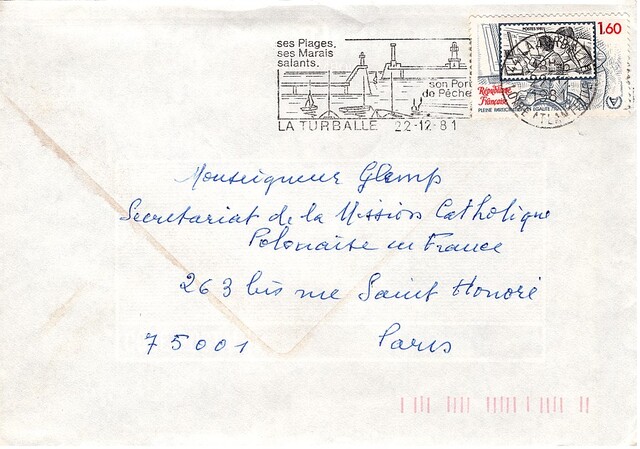 ses Plages,
ses Marais
salants.
son Port
de Pêche
LA TURBALLE 22-12-81
1.60
République
Française
Monseigneur Glemp
Secretariat de la Mission Catholique
Polonaise en France
263 bis rue Saint Honoré
75001 Paris